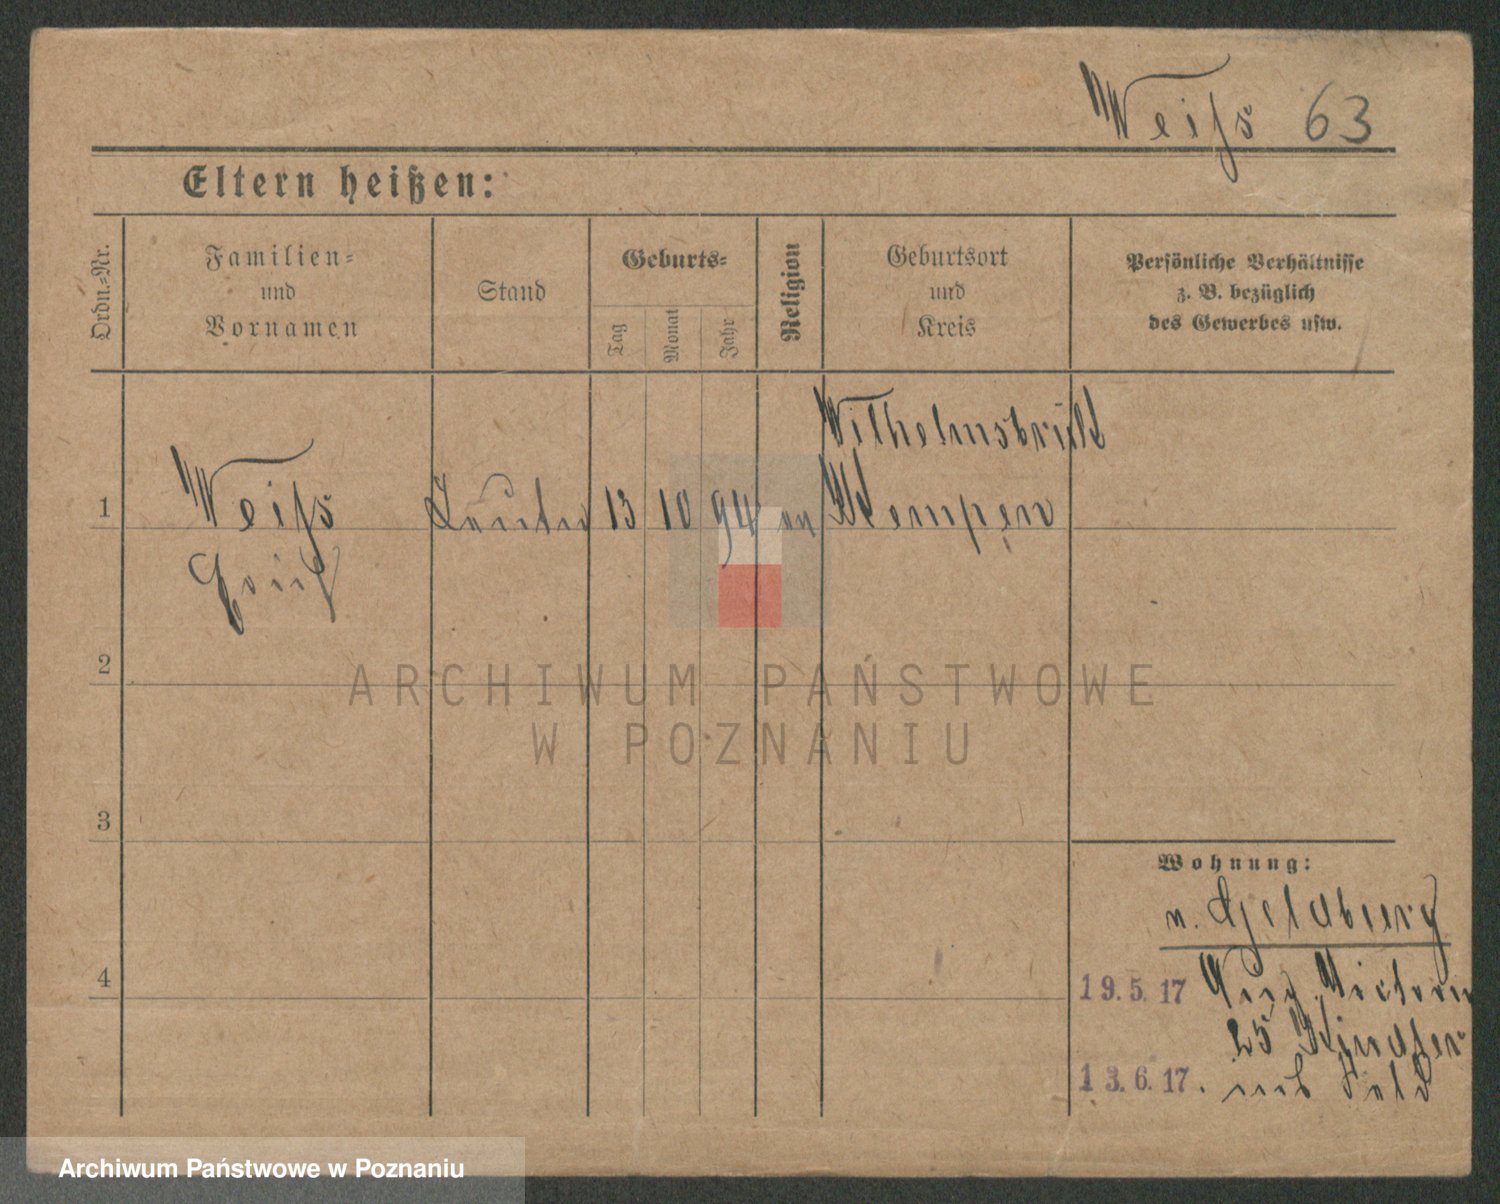 Weiß 63
Eltern heißen:
Ordn.-Nr.
Familien=
und
Vornamen
Stand
Geburts=
Tag
Monat
Jahr
Religion
Geburtsort
und
Kreis
Persönliche Verhältnisse
z. B. bezüglich
des Gewerbes usw.
Wilhelmsbrück
1 Weiß 13 10 94 Kempen
2
3
4
Wohnung:
n.
19.5.17
25
13.6.17.
ARCHIWUM PAŃSTWOWE
W POZNANIU
Archiwum Państwowe w Poznaniu